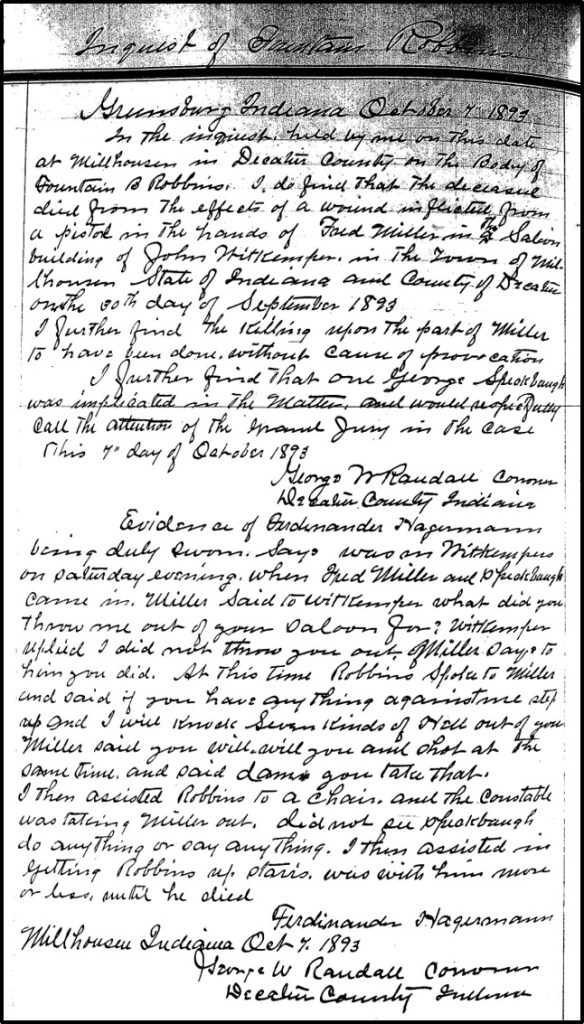 Inquest of Fountain Robbins
Greensburg Indiana October 7" 1893
In the inquest held by me on this date
at Millhousen in Decatur County on the Body of
Fountain B Robbins. I do find that the deceased
died from the effects of a wound inflicted from
a pistol in the hands of Fred Miller in the Saloon
building of John Witkemper. in the Town of Mil-
lhousen State of Indiana and County of Decatur
on the 30th day of September 1893
I further find the Killing upon the part of Miller
to have been done without cause of provocation
I further find that one George Speckbaugh
was implicated in the Matter. and would respectfully
call the attention of the Grand Jury in the case
This 7" day of October 1893
George W Randall Coroner
Decatur County Indiana
Evidence of Ferdinander Hagermann
being duly sworn. Says was in Witkempers
on Saturday evening. when Fred Miller and Speckbaugh
came in. Miller Said to Witkemper what did you
throw me out of your Saloon for? Witkemper
replied I did not throw you out. Miller says to
him you did. At this time Robbins Spoke to Miller
and said if you have anything against me step
up and I will Knock Seven Kinds of Hell out of you
Miller said you will. will you and shot at the
same time. and said damn you take that.
I then assisted Robbins to a chair. and the Constable
was taking Miller out. did not see Speckbaugh
do anything or say anything. I then assisted in
getting Robbins up stairs. was with him more
or less. until he died
Ferdinander Hagermann
Millhousen Indiana Oct 7. 1893
George W Randall Coroner
Decatur County Indiana